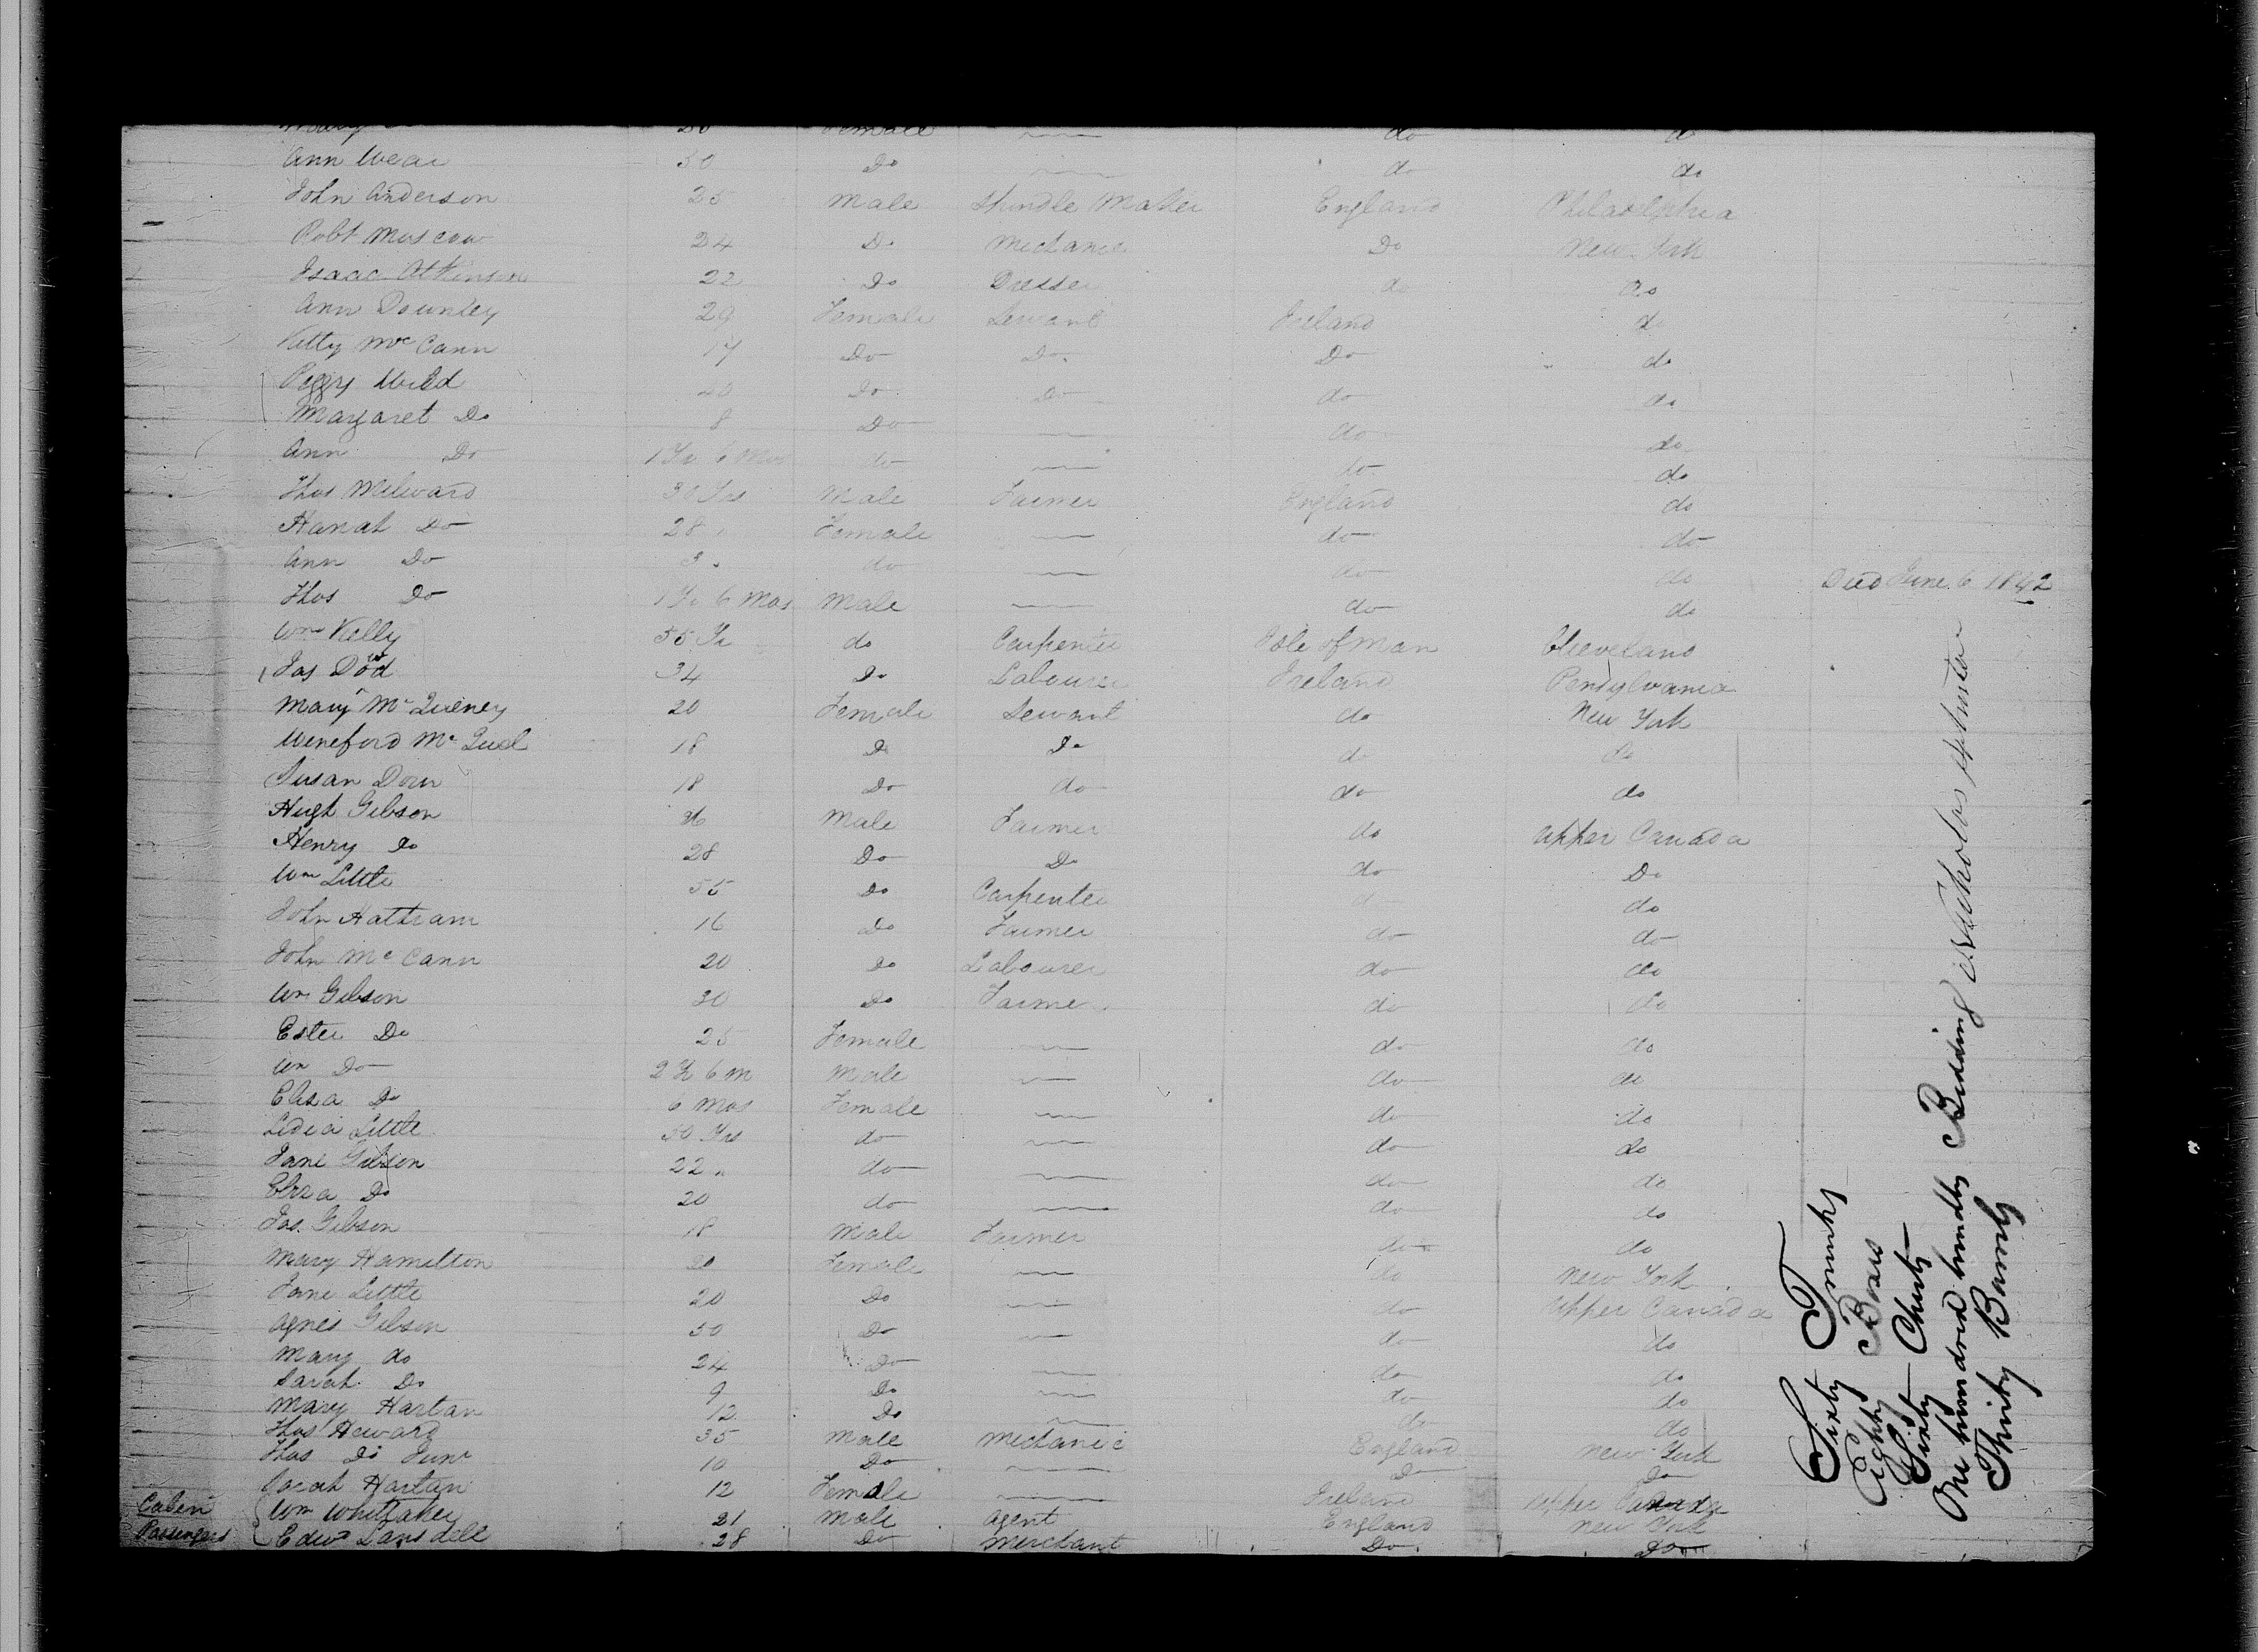 Mary 30 Female do do
Ann Wear 50 Do do do
John Anderson 25 Male Spindle Maker England Philadelphia
Robt Moscow 24 Do Mechanic Do New York
Isaac Atkinson 22 Do Dresser do do
Ann Downley 29 Female Servant Ireland do
Kitty McCann 17 Do Do Do do
Peggy Wild 40 Do Do do do
Margaret Do 8 Do do do
Ann Do 1 Yr 6 Mos do do do
Thos Milward 30 Yrs Male Farmer England do
Hanah Do 28 Female do do
Ann Do 3 do do do Died June 6 1842
Thos Do 1 Yr 6 Mos Male do do
Wm Kelly 55 Yr do Carpenter Isle of Man Cleveland
Jas Dod 34 Do Labourer Ireland Pensylvania
Mary Mc Queney 20 Female Servant do New York
Wineford Mc Quel 18 Do Do do do
Susan Dorn 18 Do do do do
Hugh Gibson 36 Male Farmer do Upper Canada
Henry do 28 Do Do do Do
Wm Little 55 Do Carpenter do do
John Hattram 16 Do Farmer do do
John Mc Cann 20 Do Labourer do do
Wm Gibson 30 Do Farmer do do
Ester Do 25 Female do do
Wm Do 2 Yr 6 m Male do do
Elisa Do 6 Mos Female do do
Lidia Little 50 Yrs do do do
Jane Gibson 22 " do do do
Eliza Do 20 do do do
Jas. Gibson 18 Male Farmer do do
Mary Hamilton 20 Female do New York
Jane Little 20 Do do Upper Canada
Agnes Gibson 50 Do do do
Mary do 24 Do do do
Sarah Do 9 Do do do
Mary Hartan 12 Do do do
Thos Heward 35 Male Mechanic England New York
Thos Do Junr 10 Do Do Do
Sarah Hartan 12 Female Ireland Upper Canada
Cabin Wm Whittaker 21 Male Agent England New York
Passengers Edwd Lansdell 28 Do Merchant Do Do
Sixty Trunks
Eighty Boxes
Sixty Chests
One hundred bundles Bedding
Thirty Barrels